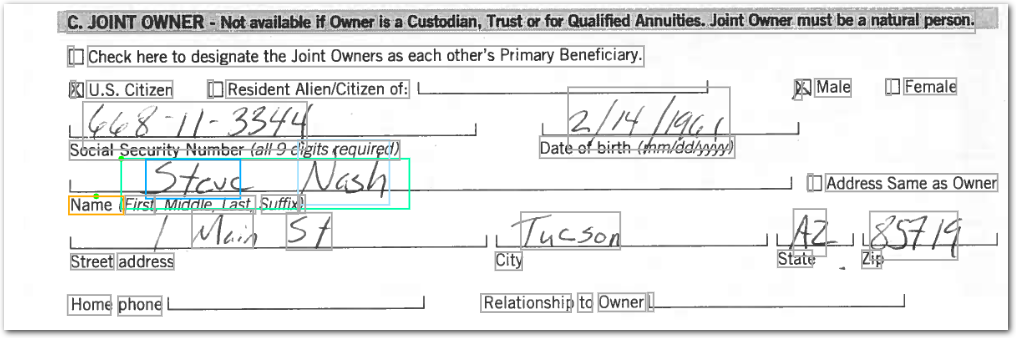 C. JOINT OWNER - Not available if Owner is a Custodian, Trust or for Qualified Annuities. Joint Owner must be a natural person.
Check here to designate the Joint Owners as each other's Primary Beneficiary.
U.S. Citizen Resident Alien/Citizen of: Male Female
668-11-3344 2/14/1966
Social Security Number (all 9 digits required) Date of birth (mm/dd/yyyy)
Steve Nash Address Same as Owner
Name (First, Middle, Last, Suffix)
1 Main St Tucson AZ 85719
Street address City State Zip
Home phone Relationship to Owner